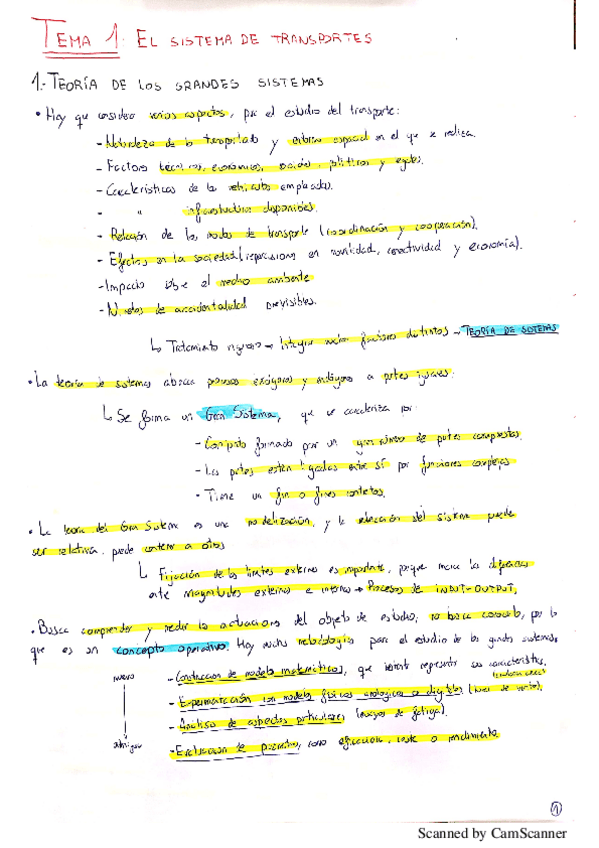 TEMA 1. EL SISTEMA DE TRANSPORTES
1.- TEORÍA DE LOS GRANDES SISTEMAS
• Hay que considerar varios aspectos, para el estudio del transporte:
- Naturaleza de lo transportado y entorno espacial en el que se realiza.
- Factores técnicos, económicos, sociales, políticos y legales.
- Características de los vehículos empleados.
- " infraestructura disponibles.
- Relación de los modos de transporte (coordinación y cooperación).
- Efectos en la sociedad (repercusiones en movilidad, conectividad y economía).
- Impacto sobre el medio ambiente
- Niveles de accidentalidad previsibles.
↳ Tratamiento riguroso → Integrar varios factores distintos → TEORÍA DE SISTEMAS
• La teoría de sistemas abarca procesos exógenos y endógenos a partes iguales:
↳ Se forma un Gran Sistema, que se caracteriza por:
- Conjunto formado por un gran número de partes compuestas.
- Las partes están ligadas entre sí por funciones complejas
- Tiene un fin o fines concretos.
• La teoría del Gran Sistema es una modelización, y la elección del sistema puede
ser relativa, puede contener a otros
↳ Fijación de los límites externos es importante, porque marca las diferencias
ente magnitudes externas e internas → Procesos de INPUT-OUTPUT.
• Busca comprender y medir las actuaciones del objeto de estudio; no busca conocerlo, por lo
que es un concepto operativo. Hay varias metodologías para el estudio de los grandes sistemas
nuevo
- Construcción de modelos matemáticos, que intenta representar sus características.
- Experimentación con modelos físicos analógicos o digitales (túnel de viento).
- Análisis de aspectos particulares (ensayos de fatiga).
antiguo
- Evaluación de parámetros, como eficiencia, coste o rendimiento
1
Scanned by CamScanner